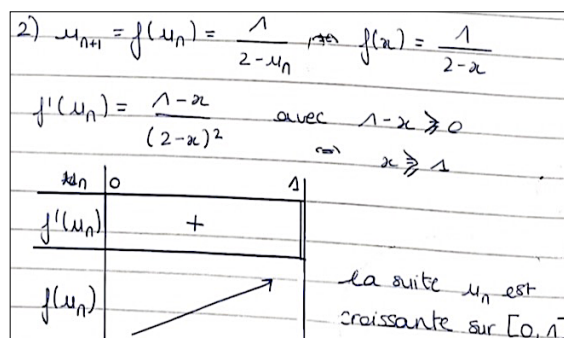 2) u_{n+1} = f(u_n) = 1/(2-u_n) f(x) = 1/(2-x)
f'(u_n) = (1-x)/(2-x)² avec 1-x ⩾ 0
⇔ x ⩾ 1
u_n 0 1
f'(u_n) +
f(u_n) la suite u_n est
croissante sur [0,1]